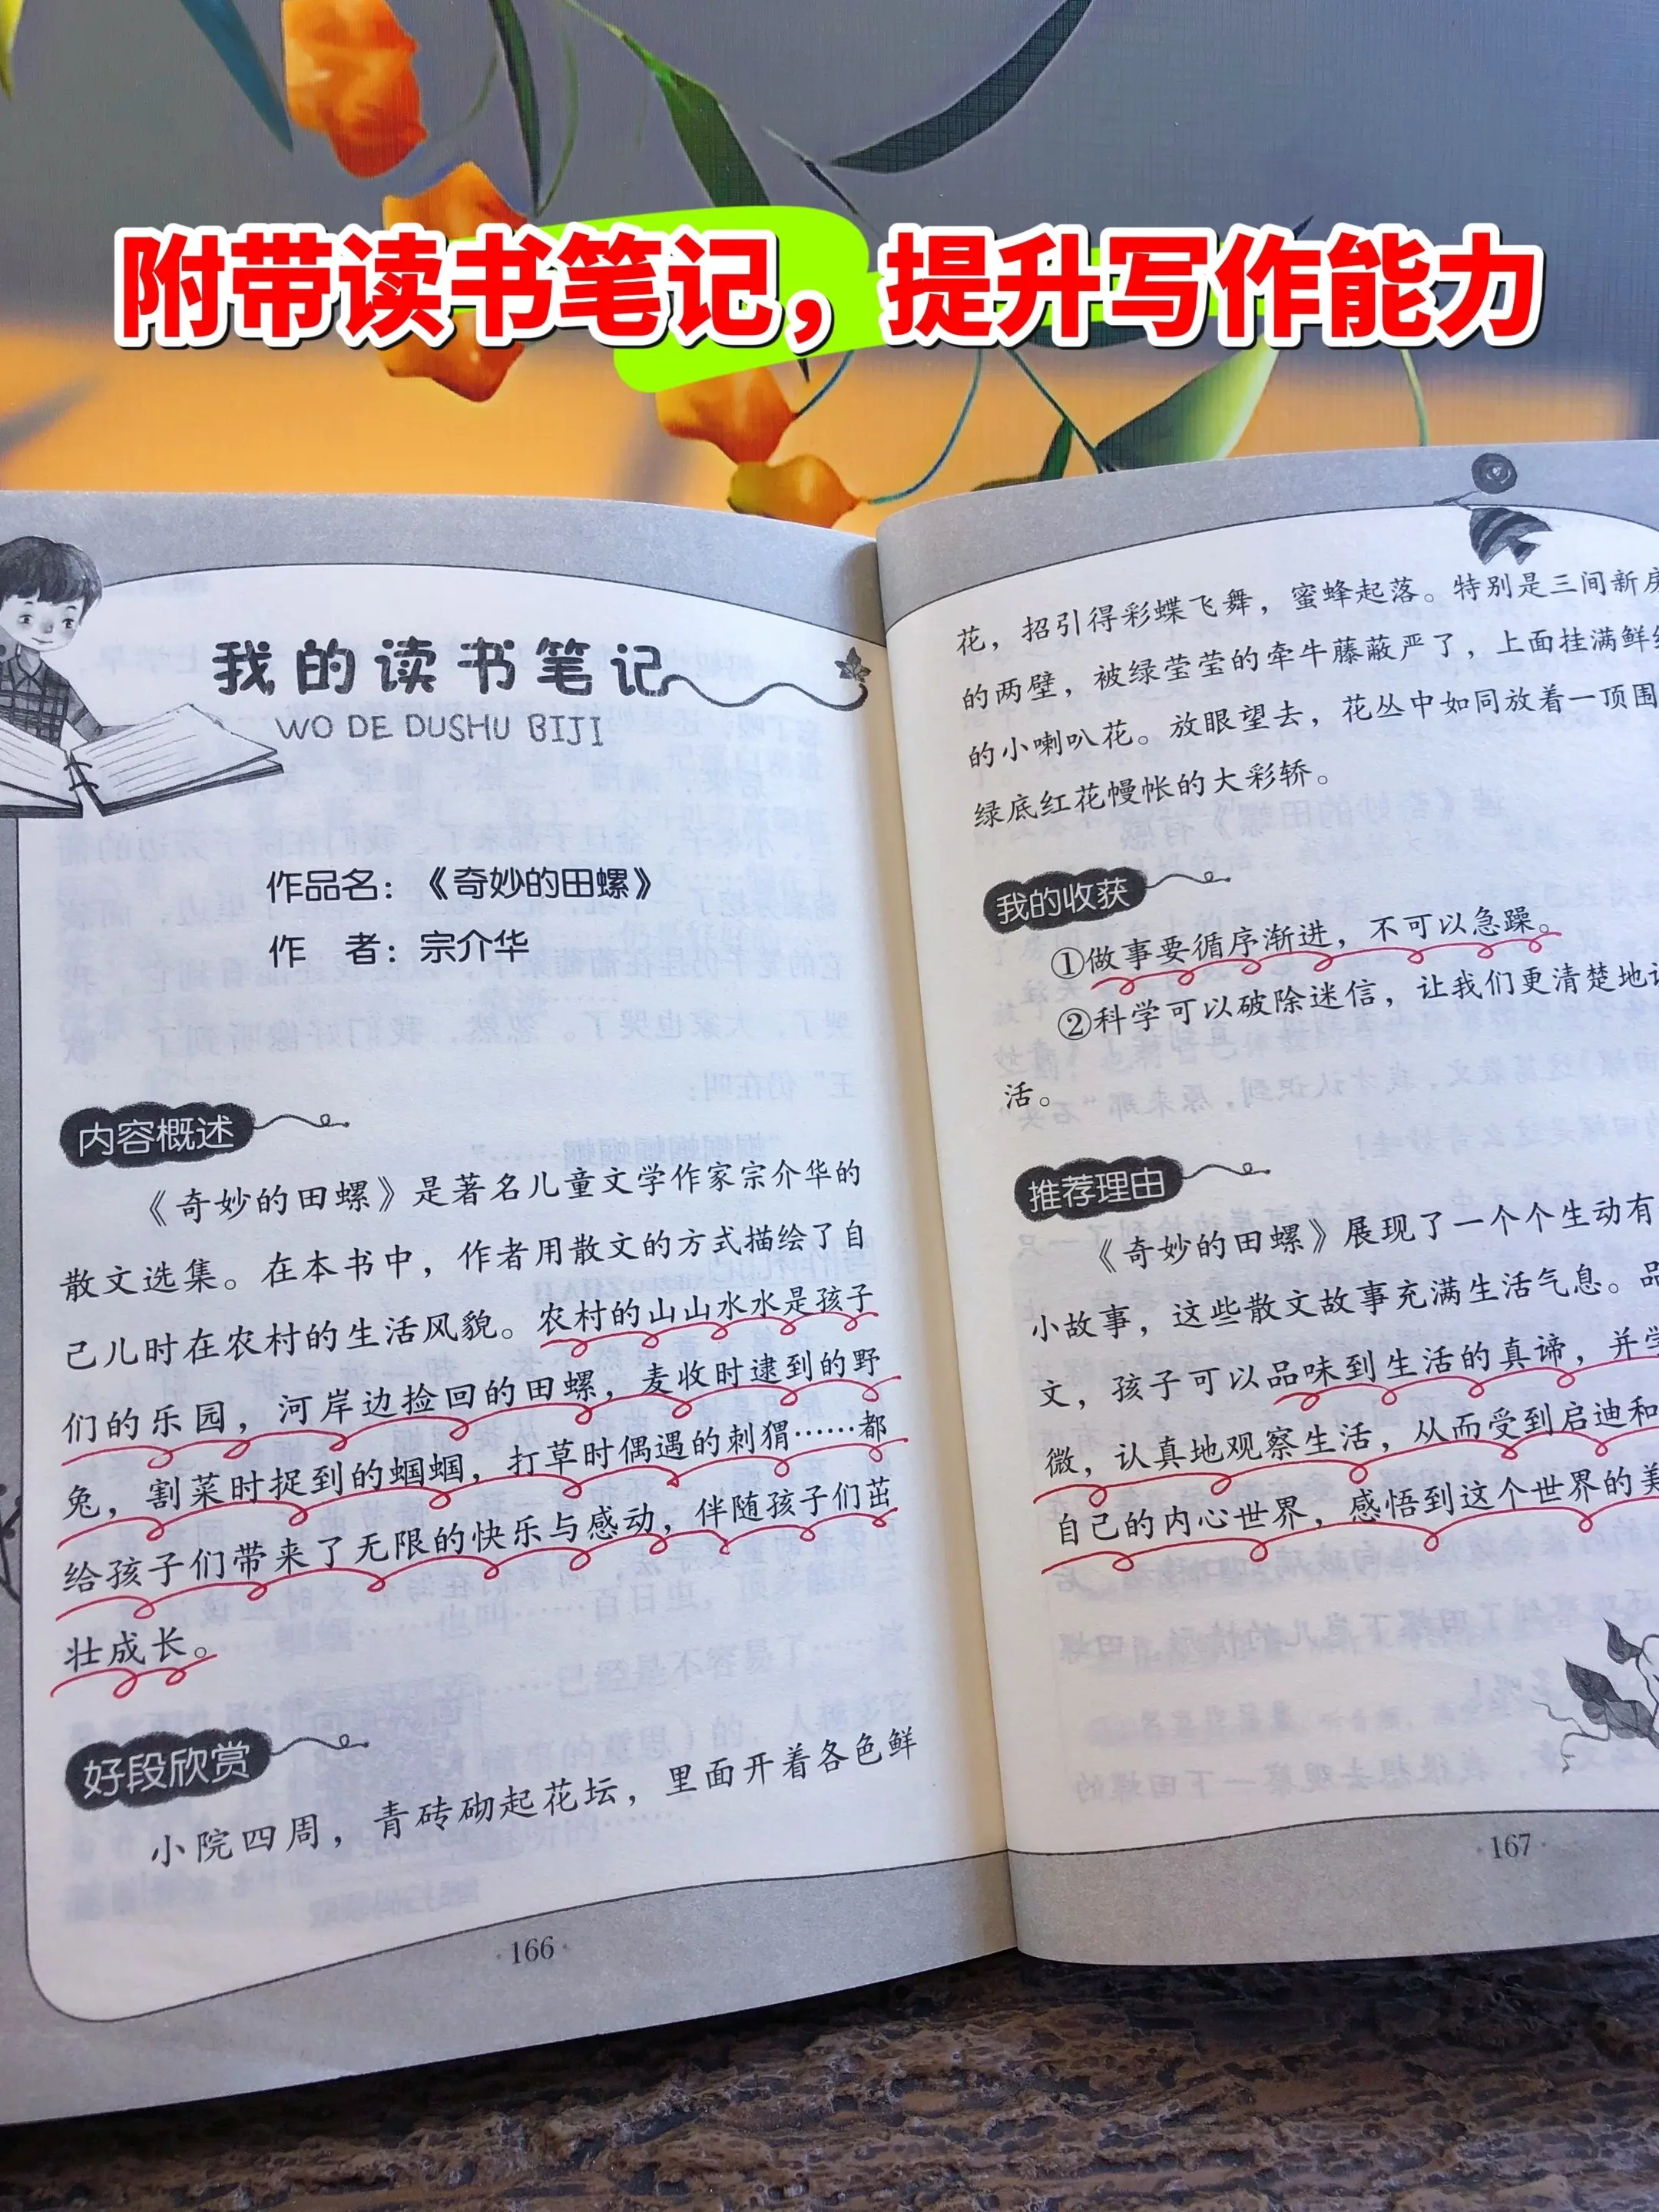 附带读书笔记，提升写作能力
我的读书笔记
WO DE DUSHU BIJI
作品名：《奇妙的田螺》
作 者：宗介华
内容概述
《奇妙的田螺》是著名儿童文学作家宗介华的
散文选集。在本书中，作者用散文的方式描绘了自
己儿时在农村的生活风貌。农村的山山水水是孩子
们的乐园，河岸边捡回的田螺，麦收时逮到的野
兔，割菜时捉到的蝈蝈，打草时偶遇的刺猬……都
给孩子们带来了无限的快乐与感动，伴随孩子们茁
壮成长。
好段欣赏
小院四周，青砖砌起花坛，里面开着各色鲜
166
花，招引得彩蝶飞舞，蜜蜂起落。特别是三间新房
的两壁，被绿莹莹的牵牛藤蔽严了，上面挂满鲜
的小喇叭花。放眼望去，花丛中如同放着一顶围
绿底红花幔帐的大彩轿。
我的收获
①做事要循序渐进，不可以急躁。
②科学可以破除迷信，让我们更清楚地
活。
推荐理由
《奇妙的田螺》展现了一个个生动有
小故事，这些散文故事充满生活气息。品
文，孩子可以品味到生活的真谛，并学
微，认真地观察生活，从而受到启迪和
自己的内心世界，感悟到这个世界的美
167